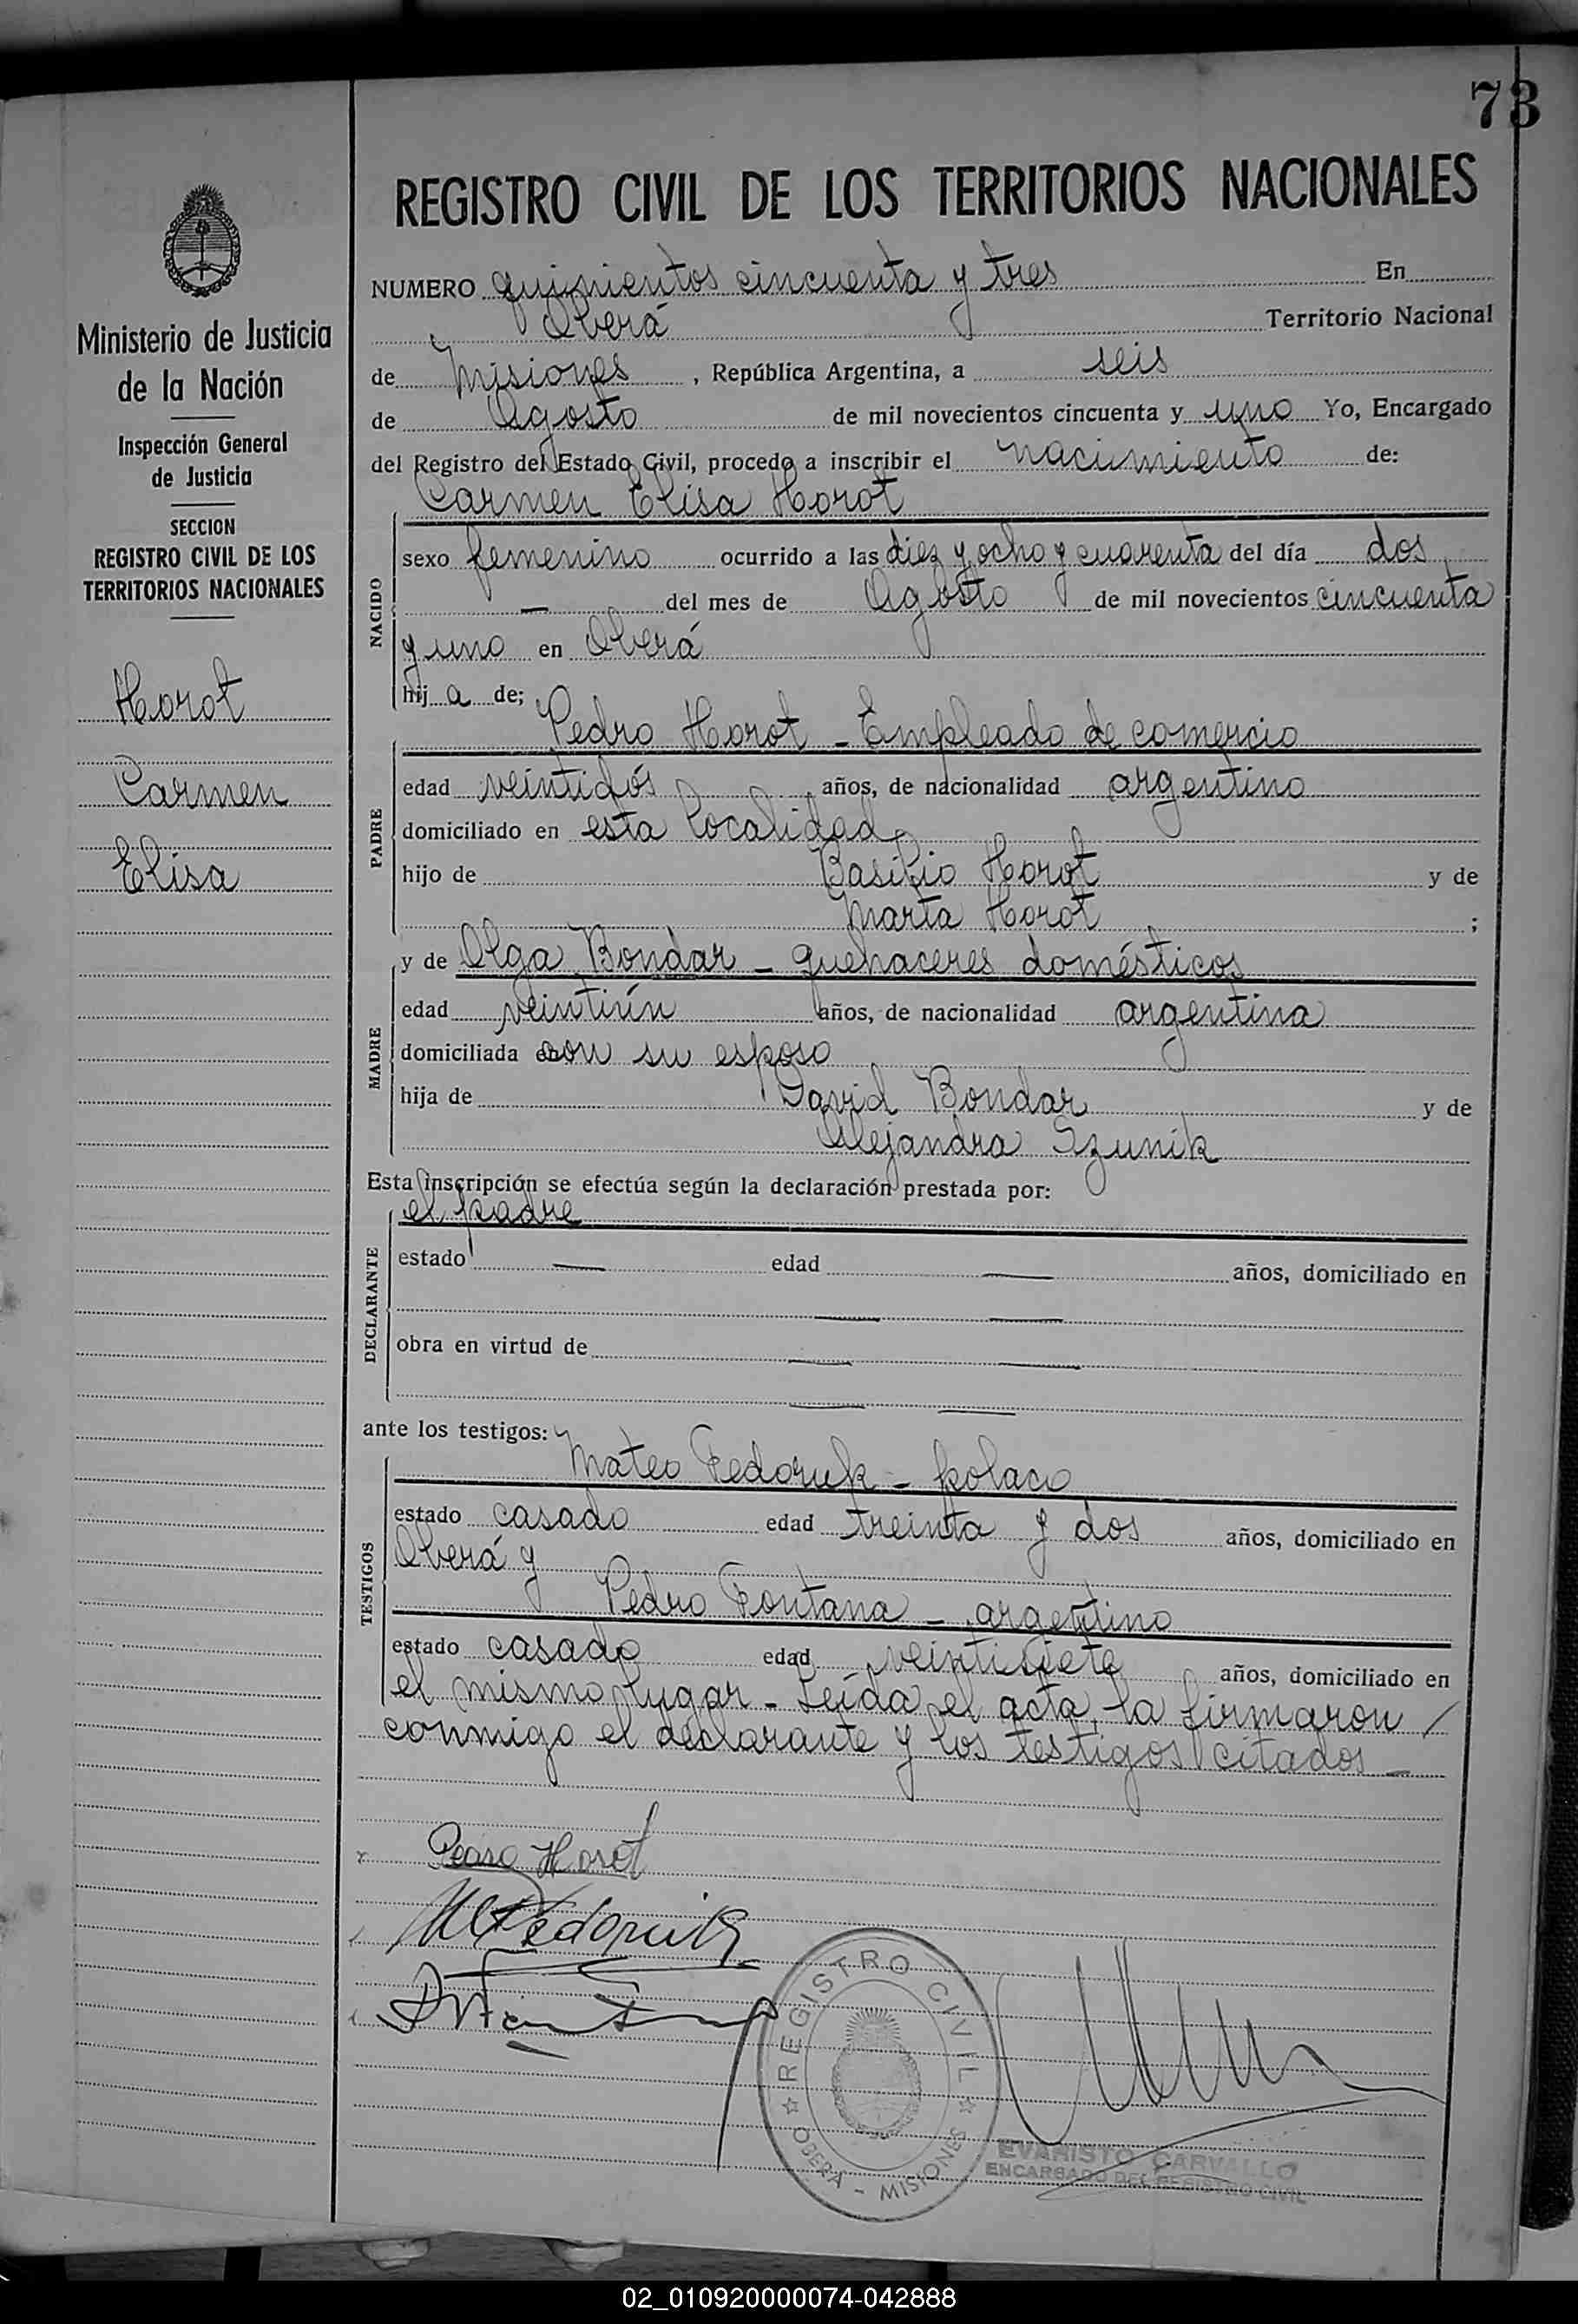 73
REGISTRO CIVIL DE LOS TERRITORIOS NACIONALES
Ministerio de Justicia
de la Nación
Inspección General
de Justicia
SECCION
REGISTRO CIVIL DE LOS
TERRITORIOS NACIONALES
Horot
Carmen
Elisa
NUMERO quinientos cincuenta y tres En
Oberá Territorio Nacional
de Misiones, República Argentina, a seis
de Agosto de mil novecientos cincuenta y uno Yo, Encargado
del Registro del Estado Civil, procedo a inscribir el nacimiento de:
Carmen Elisa Horot
NACIDO
sexo femenino ocurrido a las diez y ocho y cuarenta del día dos
— del mes de Agosto de mil novecientos cincuenta
y uno en Oberá
hija de;
Pedro Horot - Empleado de comercio
PADRE
edad veintidós años, de nacionalidad argentino
domiciliado en esta localidad
hijo de Basilio Horot y de
Marta Horot ;
y de Olga Bondar - quehaceres domésticos
MADRE
edad veintiún años, de nacionalidad argentina
domiciliada con su esposo
hija de David Bondar y de
Alejandra Szunik
Esta inscripción se efectúa según la declaración prestada por:
el padre
DECLARANTE
estado — edad — años, domiciliado en
— —
obra en virtud de — —
— —
ante los testigos:
Mateo Fedoruk - polaco
TESTIGOS
estado casado edad treinta y dos años, domiciliado en
Oberá y
Pedro Fontana - argentino
estado casado edad veintisiete años, domiciliado en
el mismo lugar - Leída el acta, la firmaron /
conmigo el declarante y los testigos citados -
Pedro Horot
M Fedoruk
REGISTRO CIVIL
OBERÁ - MISIONES
EVARISTO CARVALLO
ENCARGADO DEL REGISTRO CIVIL
02_010920000074-042888